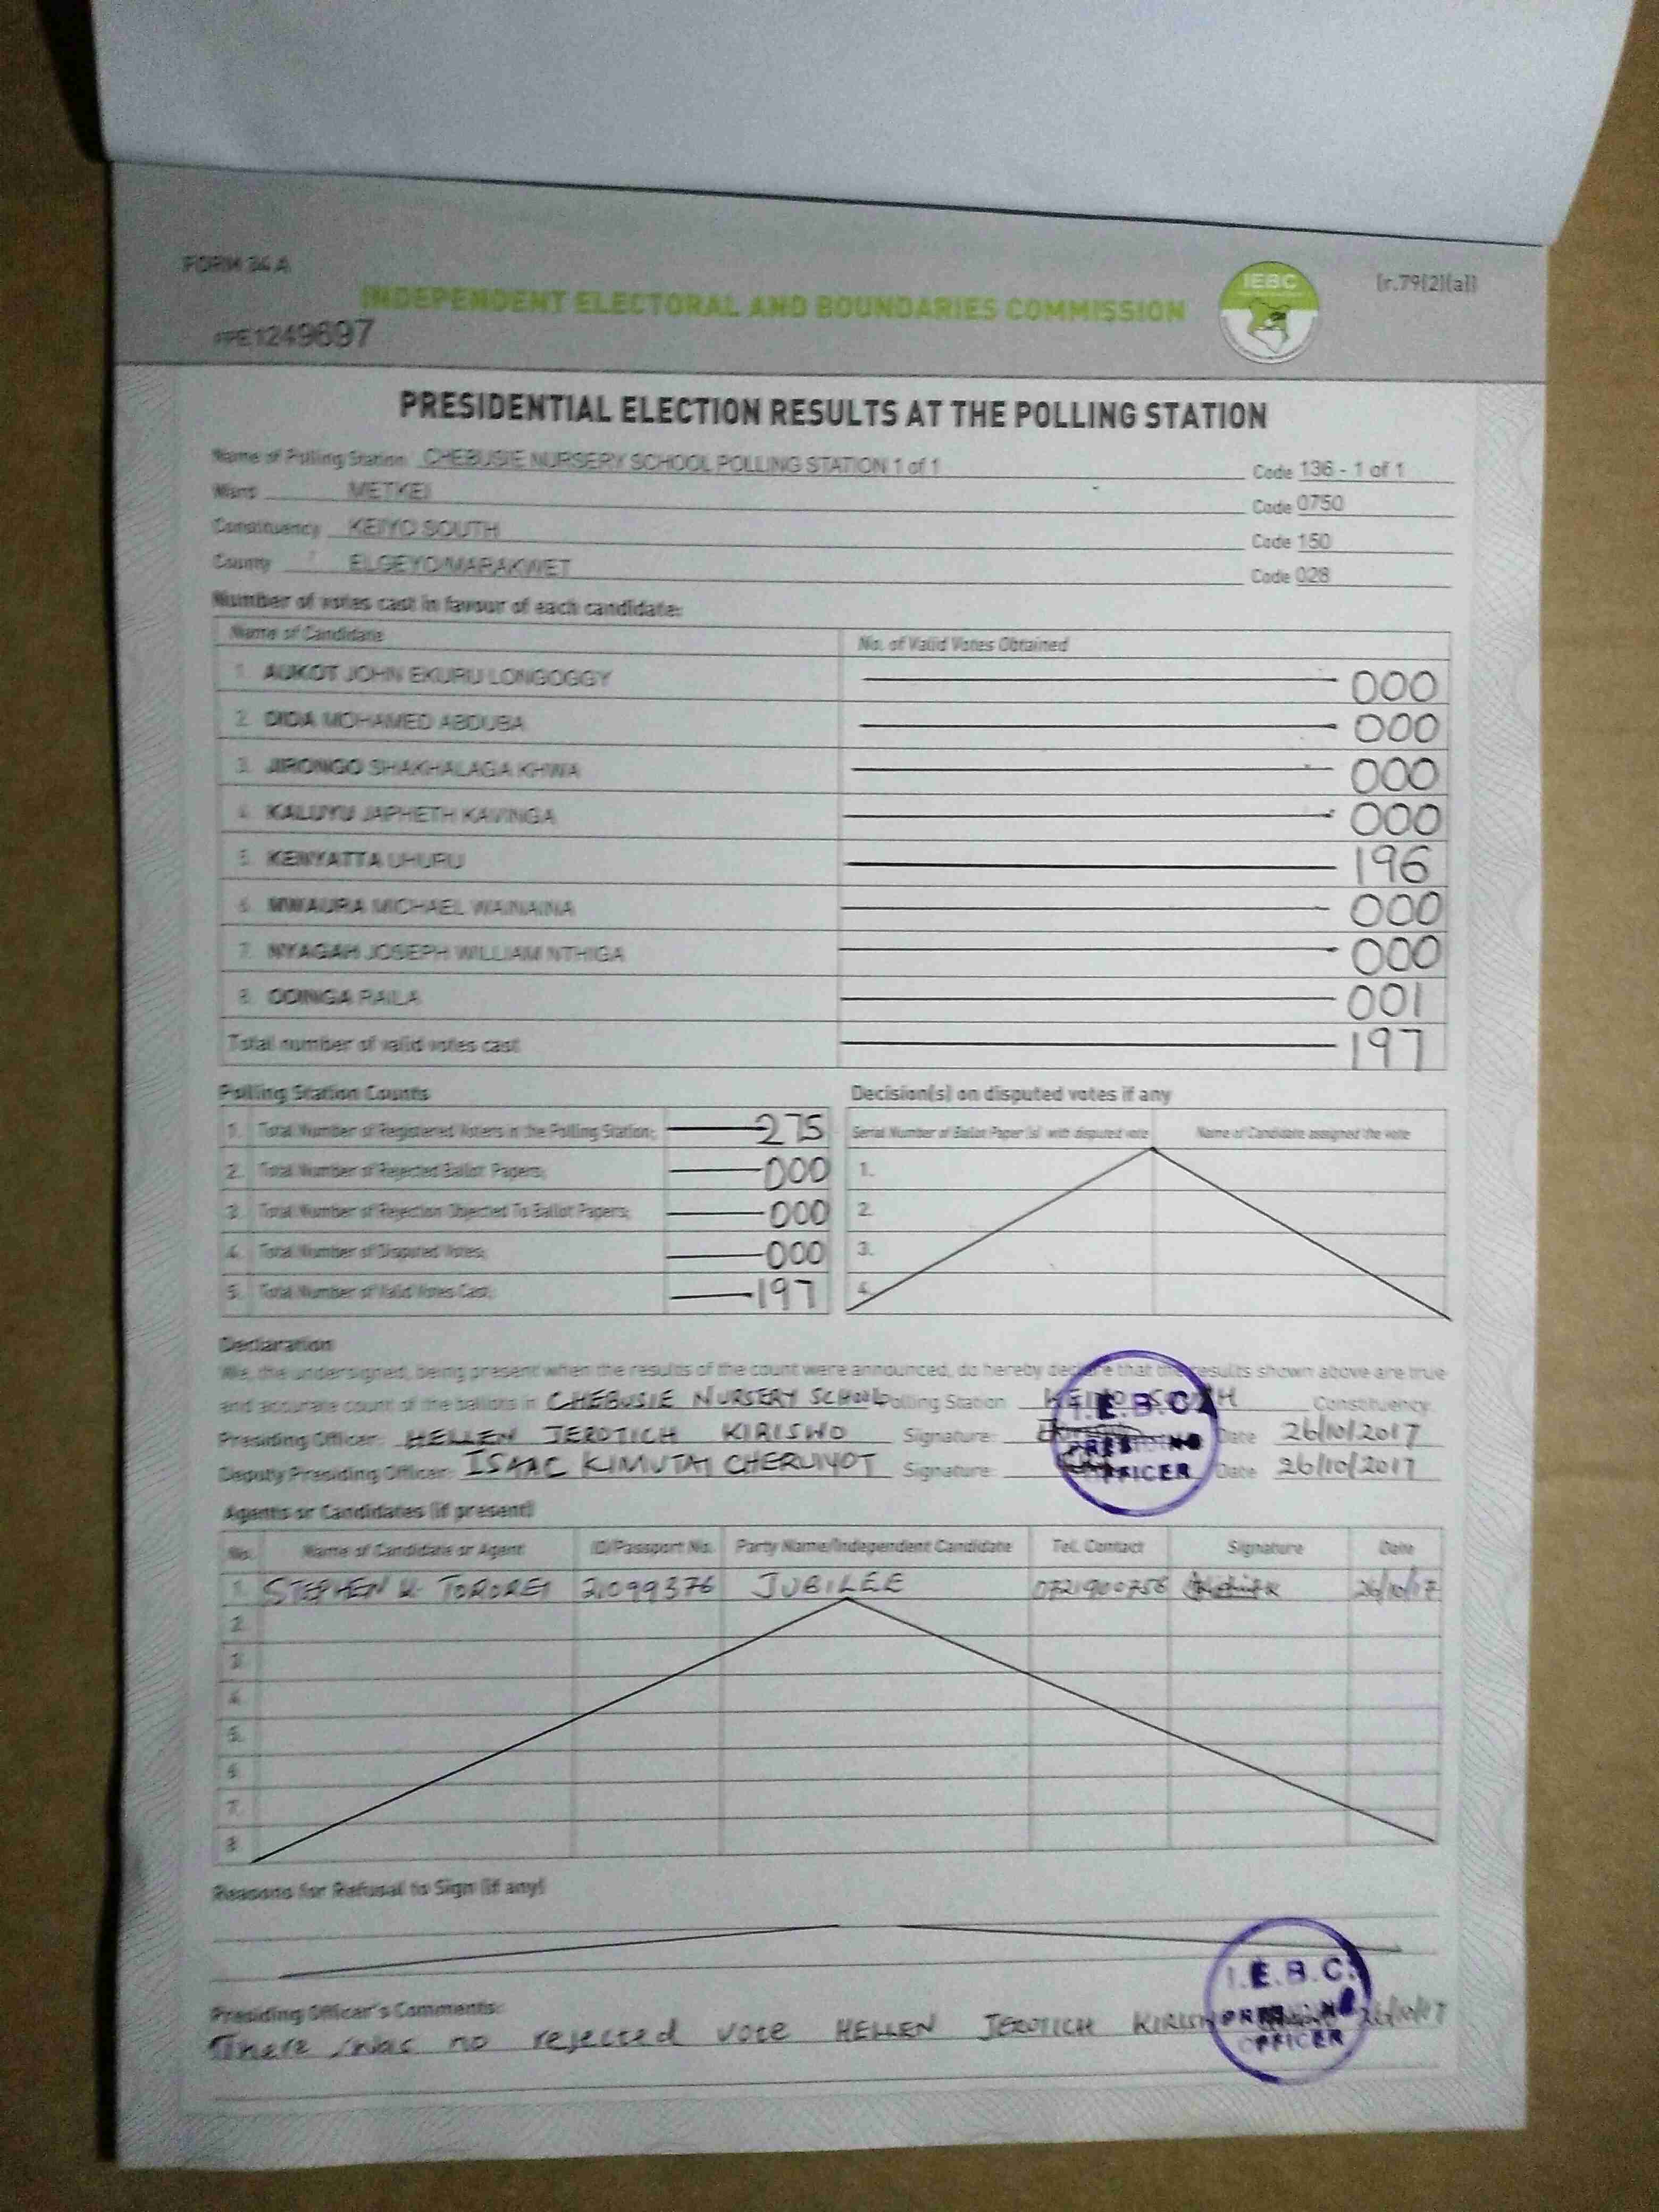 FORM 34 A
IEBC
(r.79(2)(a))
INDEPENDENT ELECTORAL AND BOUNDARIES COMMISSION
PRESIDENTIAL ELECTION RESULTS AT THE POLLING STATION
Name of Polling Station CHEBUSIE NURSERY SCHOOL POLLING STATION 1 of 1 Code 136 - 1 of 1
Ward METKEI Code 0750
Constituency KEIYO SOUTH Code 150
County ELGEYO/MARAKWET Code 028
Number of votes cast in favour of each candidate:
Name of Candidate No. of Valid Votes Obtained
1. AUKOT JOHN EKURU LONGOGGY 000
2. DIDA MOHAMED ABDUBA 000
3. JIRONGO SHAKHALAGA KHWA 000
4. KALUYU JAPHETH KAVINGA 000
5. KENYATTA UHURU 196
6. MWAURA MICHAEL WAINAINA 000
7. NYAGAH JOSEPH WILLIAM NTHIGA 000
8. ODINGA RAILA 001
Total number of valid votes cast 197
Polling Station Counts
1. Total Number of Registered Voters in the Polling Station; 275
2. Total Number of Rejected Ballot Papers; 000
3. Total Number of Rejection Objected To Ballot Papers; 000
4. Total Number of Disputed Votes; 000
5. Total Number of Valid Votes Cast; 197
Decision(s) on disputed votes if any
Serial Number of Ballot Paper(s) with disputed vote Name of Candidate assigned the vote
1.
2.
3.
4.
Declaration
We, the undersigned, being present when the results of the count were announced, do hereby declare that the results shown above are true
and accurate count of the ballots in CHEBUSIE NURSERY SCHOOL Polling Station KEIYO SOUTH Constituency.
Presiding Officer: HELLEN JEROTICH KIRISWO Signature: Date 26/10/2017
Deputy Presiding Officer: ISAAC KIMUTAI CHERUIYOT Signature: Date 26/10/2017
I.E.B.C.
PRESIDING
OFFICER
Agents or Candidates (if present)
No. Name of Candidate or Agent ID/Passport No. Party Name/Independent Candidate Tel. Contact Signature Date
1. STEPHEN K. TOROREI 21099376 JUBILEE 0721900758 26/10/17
2.
3.
4.
5.
6.
7.
8.
Reasons for Refusal to Sign (if any)
Presiding Officer's Comments:
There was no rejected vote HELLEN JEROTICH 26/10/17
I.E.B.C.
PRESIDING
OFFICER